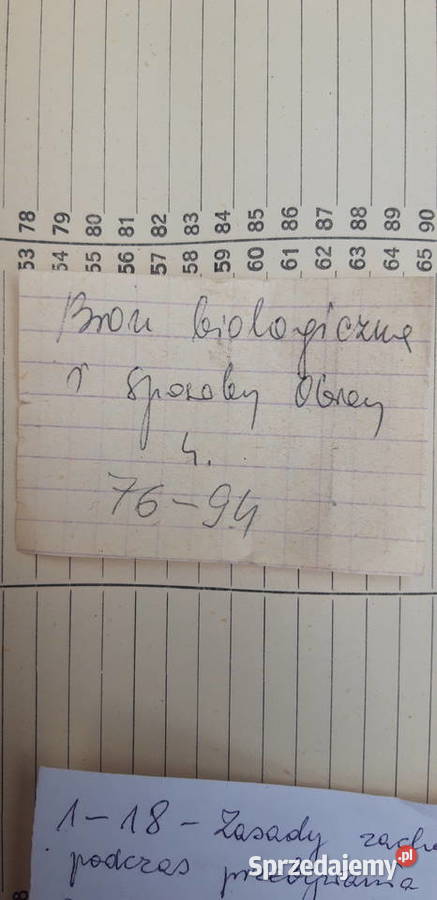 78
79
80
81
82
83
84
85
86
87
88
89
90
53
54
55
56
57
58
59
60
61
62
63
64
65
Broń biologiczna
i sposoby obrony
4.
76-94
1-18 - Zasady
podczas przebywania
Sprzedajemy.pl